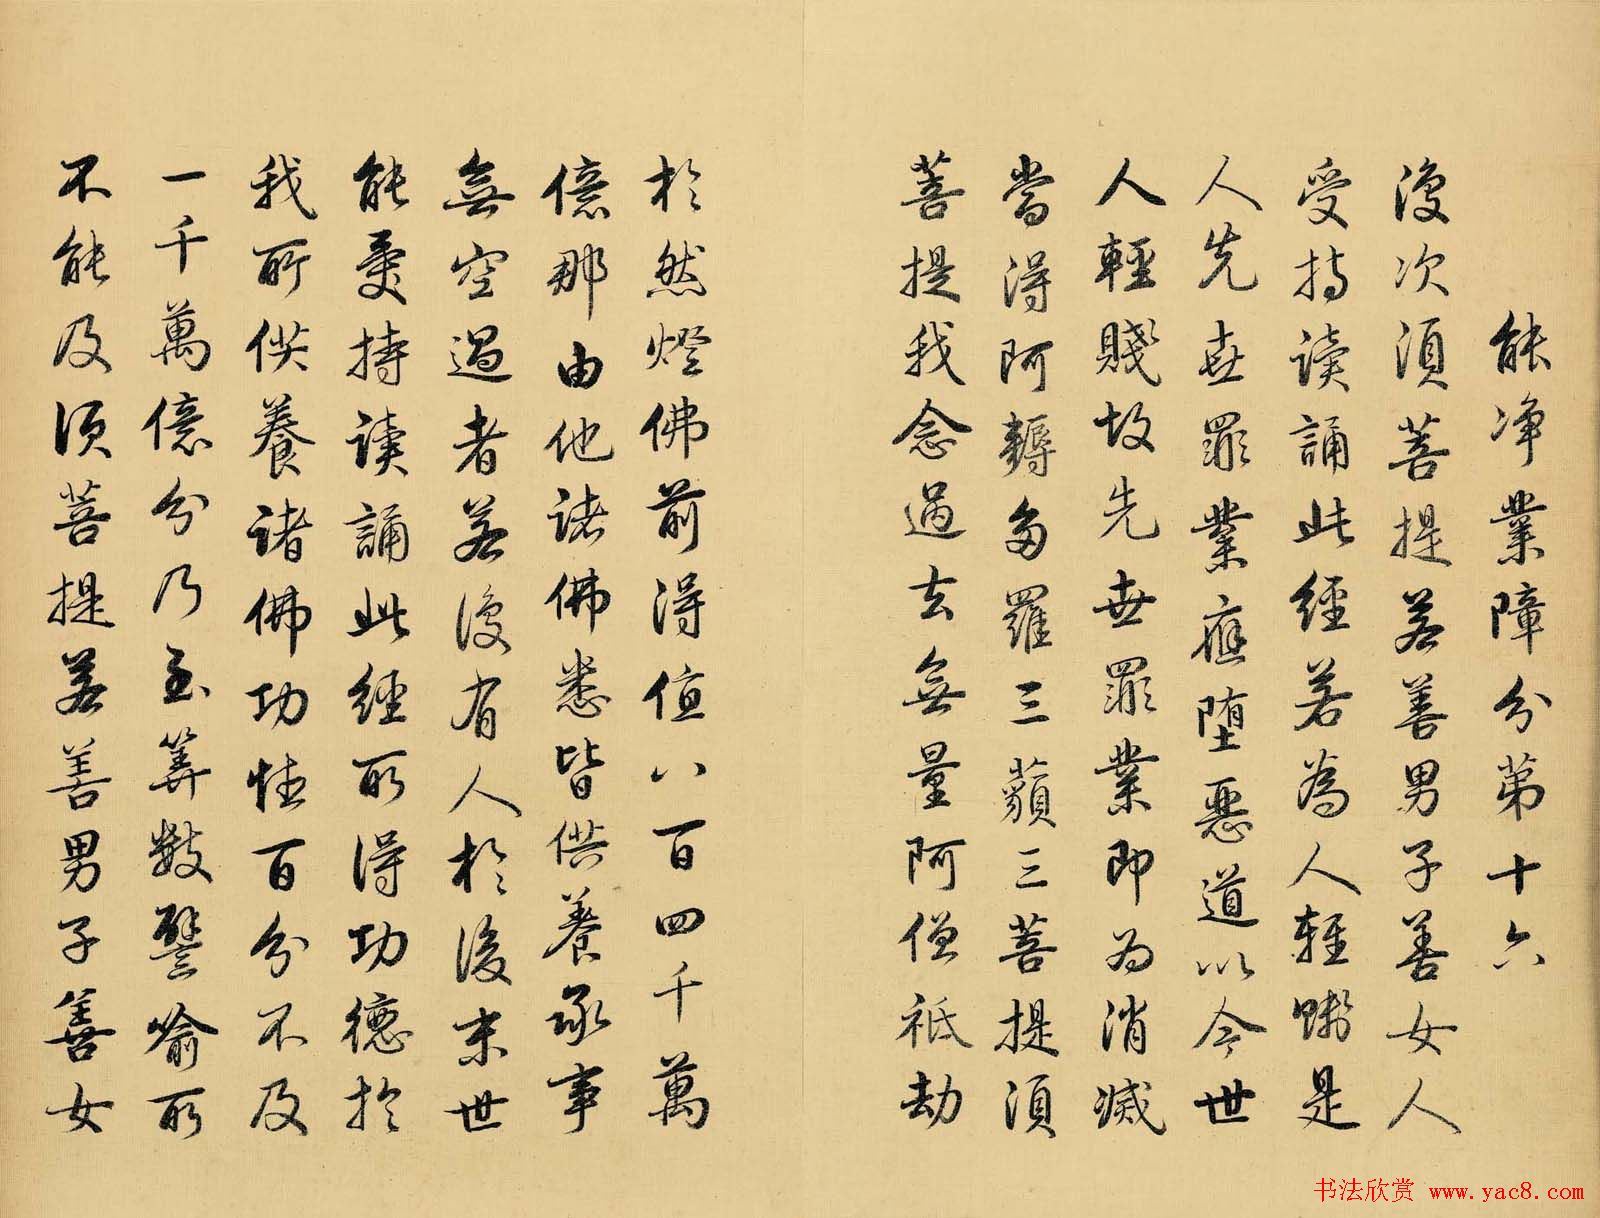 能淨業障分第十六
復次須菩提若善男子善女人
受持读誦此經若為人輕賤是
人先世罪業應堕惡道以今世
人輕賤故先世罪業即為消滅
當得阿耨多羅三藐三菩提須
菩提我念過去無量阿僧祇劫
於然燈佛前得值八百四千萬
億那由他諸佛悉皆供養承事
無空過者若復有人於後末世
能受持读誦此經所得功德於
我所供養諸佛功德百分不及
一千萬億分乃至筭數譬喻所
不能及須菩提若善男子善女
书法欣赏 www.yac8.com